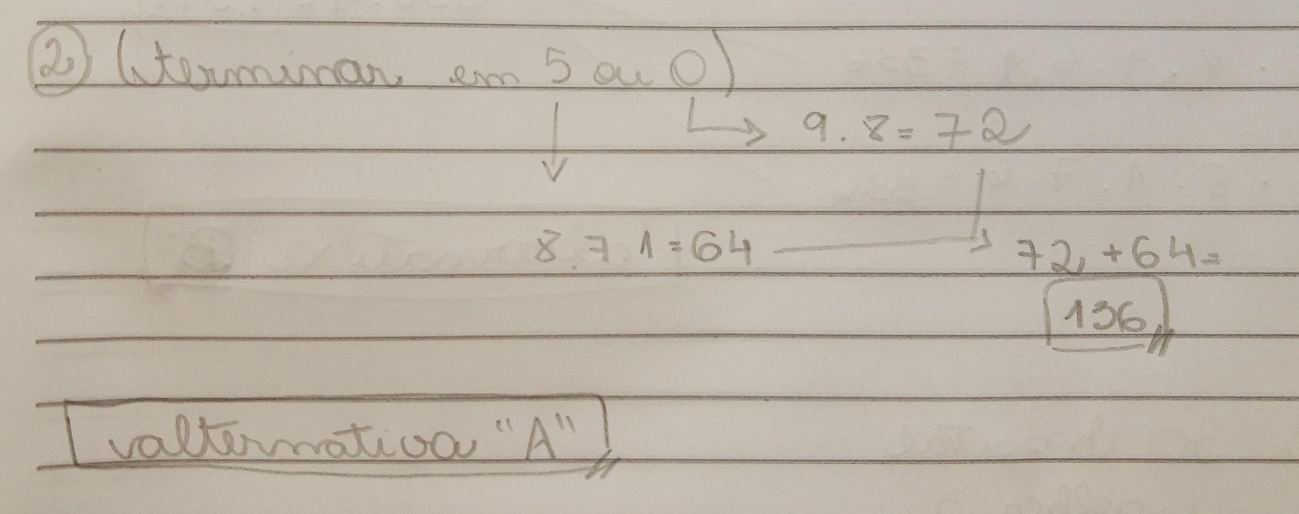 2) (terminar em 5 ou 0)
9.8=72
8.7 1=64 72+64=
136
alternativa "A"